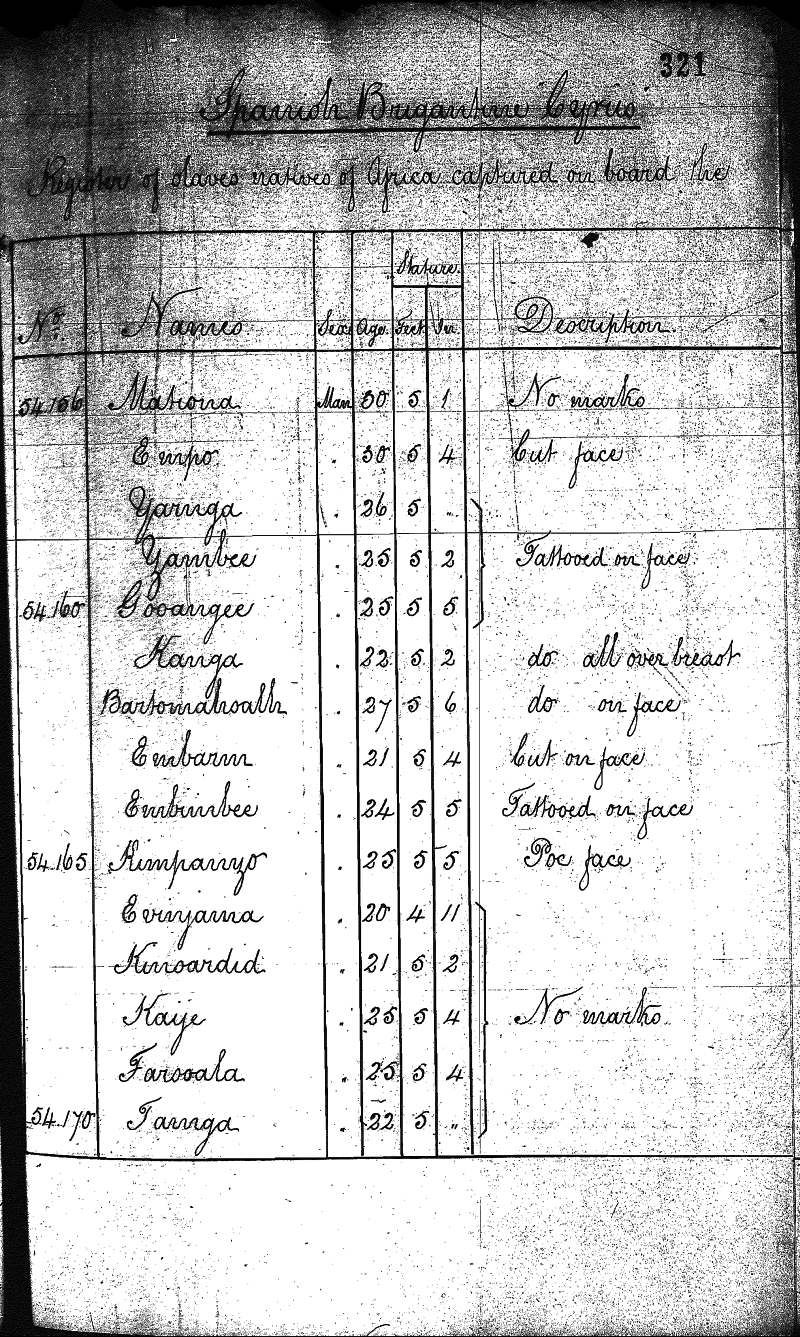 321
Spanish Brigantine Cyrus
Register of slaves natives of Africa captured on board the
Stature.
No. Names Sex Age. Feet In. Description.
54.156 Mationa Man 30 5 1 No marks
Empo . 30 5 4 Cut face
Yarnga . 26 5 „
Yambee . 25 5 2 Tattooed on face
54.160 Gooangee . 25 5 5
Kanga . 22 5 2 do all over breast
Bartomahoath . 27 5 6 do on face
Embarm . 21 5 4 Cut on face
Embimbee . 24 5 5 Tattooed on face
54.165 Kimpanzo . 25 5 5 Poc face
Evinyama . 20 4 11
Kinoardid . 21 5 2
Kaije . 25 5 4 No marks
Farsoala . 25 5 4
54.170 Tamga . 22 5 „